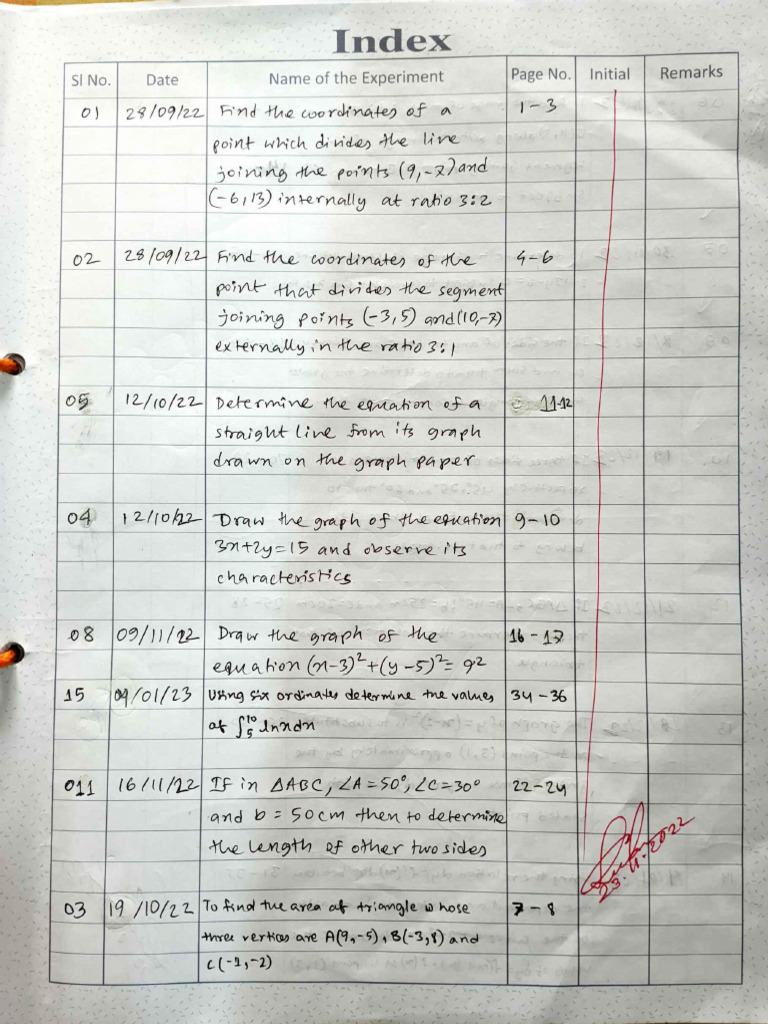 Index
SI No. Date Name of the Experiment Page No. Initial Remarks
01 28/09/22 Find the coordinates of a 1-3
point which divides the line
joining the points (9,-7) and
(-6,13) internally at ratio 3:2
02 28/09/22 Find the coordinates of the 4-6
point that divides the segment
joining points (-3,5) and (10,-7)
externally in the ratio 3:1
05 12/10/22 Determine the equation of a 11-12
straight line from its graph
drawn on the graph paper
04 12/10/22 Draw the graph of the equation 9-10
3x+2y=15 and observe its
characteristics
08 09/11/22 Draw the graph of the 16-17
equation (x-3)²+(y-5)²= 9²
15 09/01/23 Using six ordinates determine the values 34-36
of ∫₅¹⁰ lnxdx
011 16/11/22 If in ΔABC, ∠A=50°, ∠C=30° 22-24
and b = 50cm then to determine
the length of other two sides
23.11.2022
03 19/10/22 To find the area of triangle whose 7-8
three vertices are A(9,-5), B(-3,8) and
C(-1,-2)